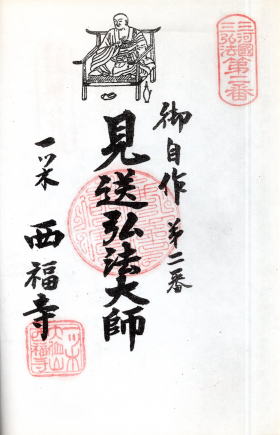 三河國
三弘法
第二番
御自作 第二番
見送弘法大師
一ツ木 西福寺